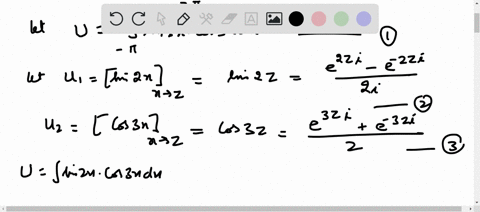 let U = - π
let u₁ = [sin 2x]ₓ→z = sin 2z = (e^{2zi} - e^{-2zi}) / 2i — ②
u₂ = [cos 3x]ₓ→z = cos 3z = (e^{3zi} + e^{-3zi}) / 2 — ③
U = ∫ sin 2x · cos 3x dx